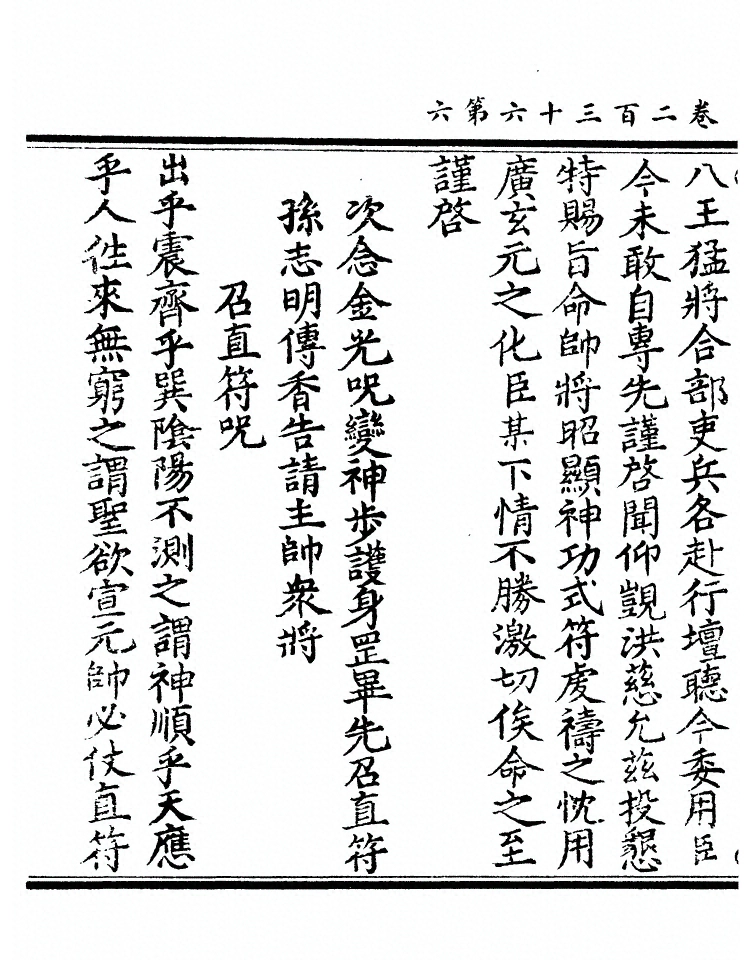 卷二百三十六第六
八王猛將合部吏兵各赴行壇聽令委用臣
今未敢自專先謹啓聞仰覬洪慈允茲投懇
特賜旨命帥將昭顯神功式符虔禱之忱用
廣玄元之化臣某下情不勝激切俟命之至
謹啓
次念金光呪變神步護身罡畢先召直符
孫志明傳香告請主帥衆將
召直符呪
出乎震齊乎巽陰陽不測之謂神順乎天應
乎人徃來無窮之謂聖欲宣元帥必仗直符